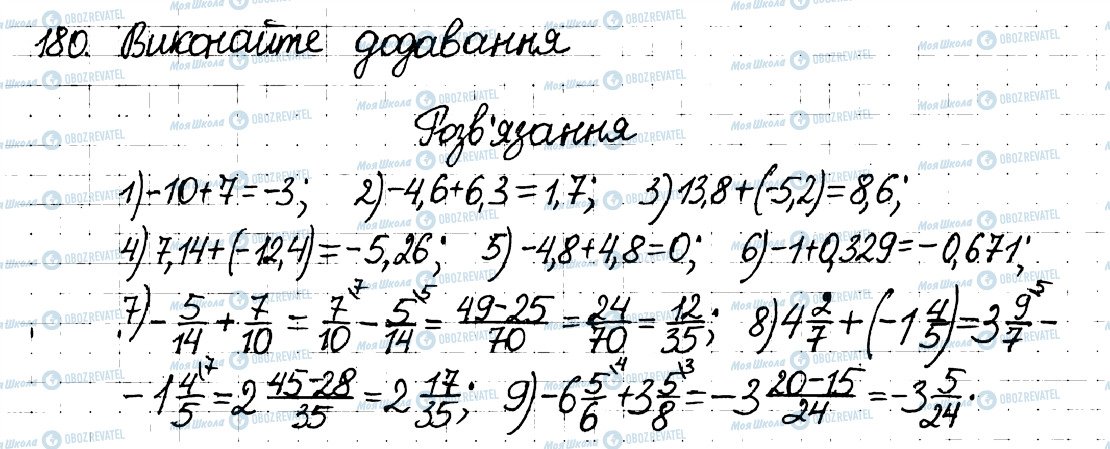 180. Виконайте додавання
Розв'язання
1) -10+7=-3; 2) -4,6+6,3=1,7; 3) 13,8+(-5,2)=8,6;
4) 7,14+(-12,4)=-5,26; 5) -4,8+4,8=0; 6) -1+0,329=-0,671;
7) -5/14+7/10=7/10\7-5/14\5=49-25/70=24/70=12/35; 8) 4 2/7+(-1 4/5)=3 9/7\5-
-1 4/5\7=2 45-28/35=2 17/35; 9) -6 5/6\4+3 5/8\3=-3 20-15/24=-3 5/24.